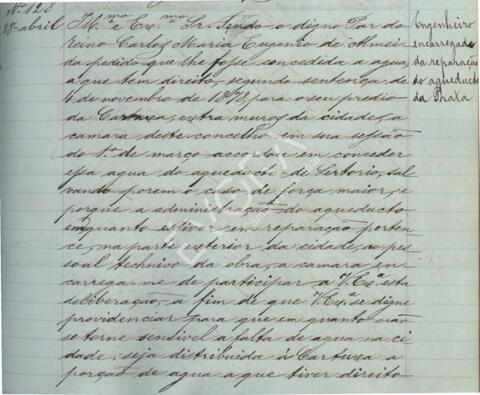 Nº 128
27-abril
Engenheiro
encarregado
da reparação
do aqueducto
da Prata
Ill.mo e Ex.mo Sr. Tendo o digno Par do
Reino Carlos Maria Eugenio de Almei
da pedido que lhe fosse concedida a agua
a que tem direito, segundo sentença de
4 de novembro de 1873, para o seu predio
da Cartuxa, extra muros da cidade, a
camara deste concelho em sua sessão
do 1.º de março accordou em conceder
essa agua do aqueducto de Sertorio, sal
vando porem o caso de força maior, e
porque a administração do aqueducto
emquanto estiver em reparação perten
ce, na parte exterior da cidade, ao pes
soal technico da obra, a camara in
carrega-me de participar a V. Ex.ª esta
deliberação, a fim de que V. Ex.ª se digne
providenciar para que em quanto não
se torne sensivel a falta de agua na ci
dade, seja distribuida á Cartuxa a
porção de agua a que tiver direito